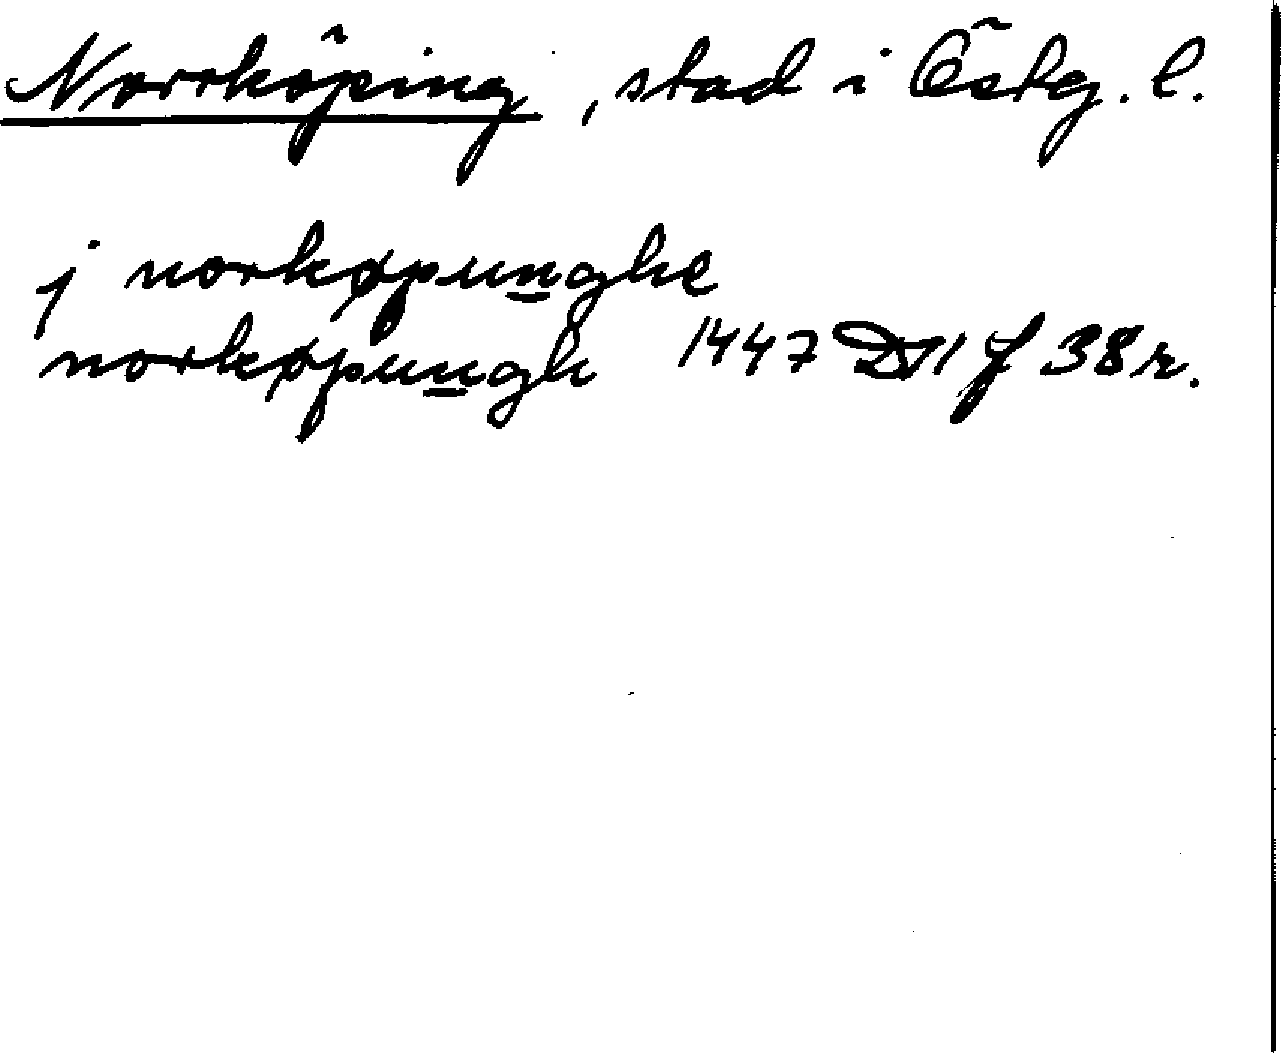 Norrköping, stad i Östg. l.
j norkøpunghe
norkøpungh 1447 DII f 38 r.